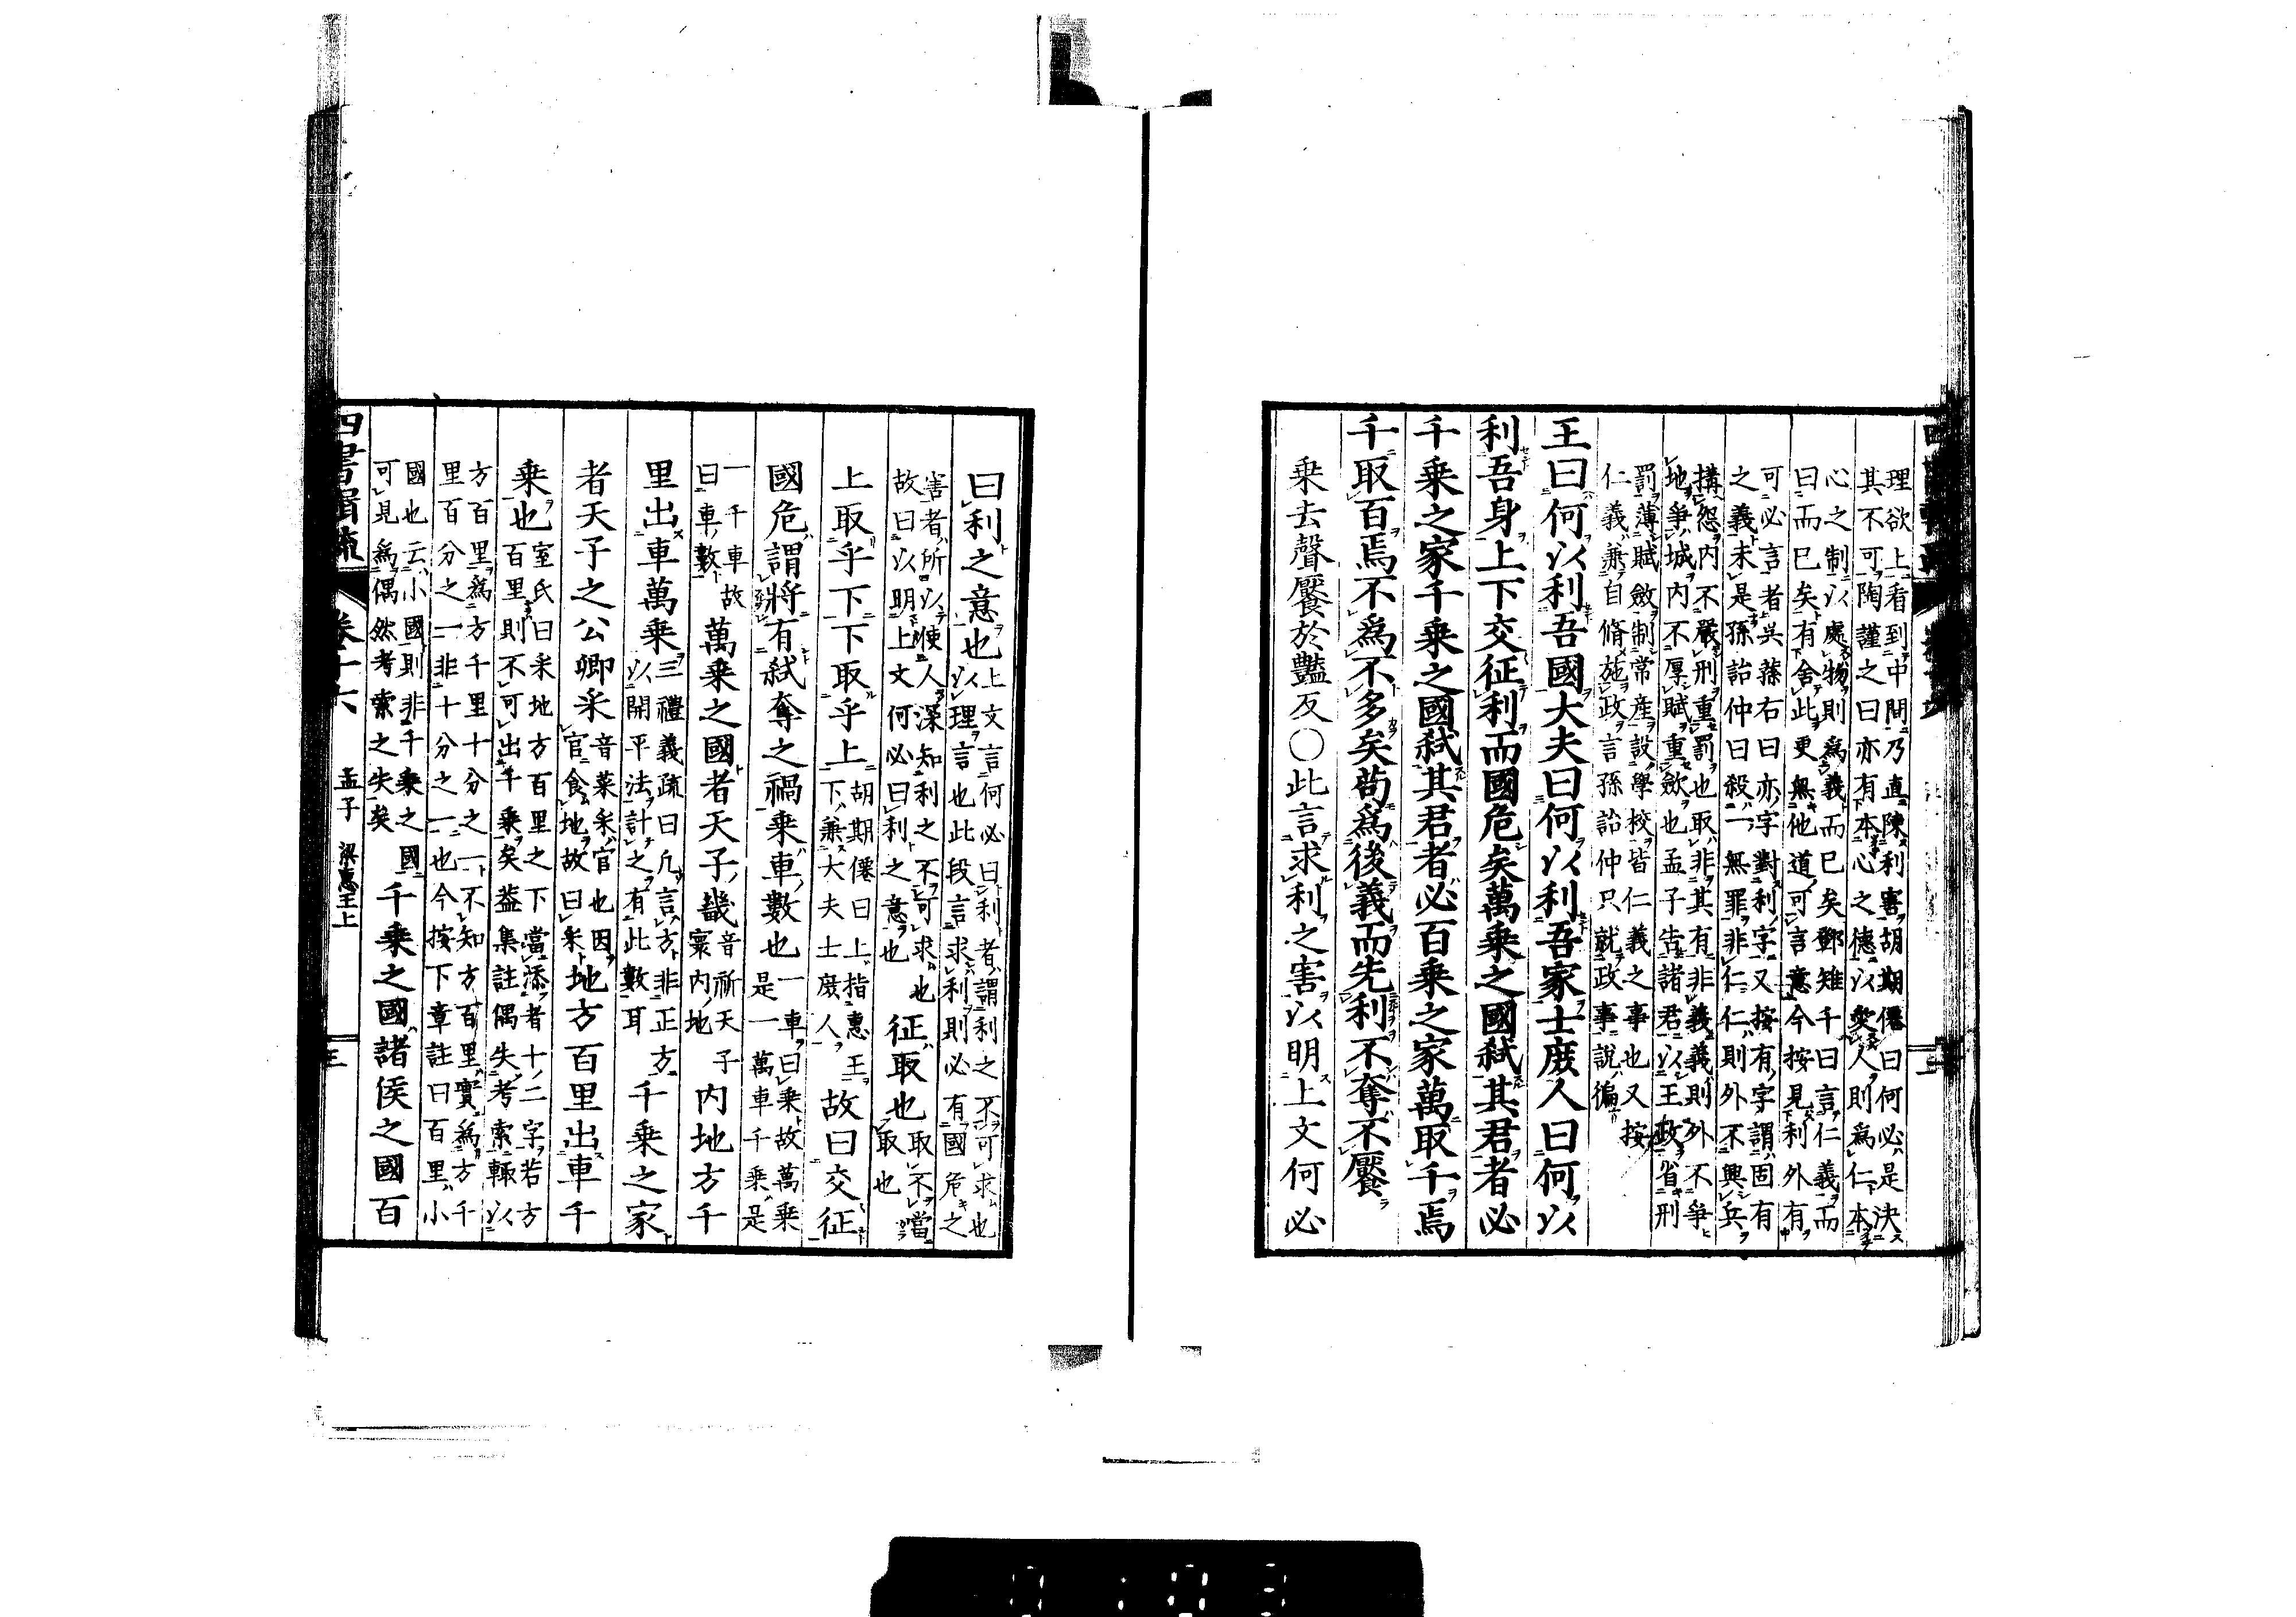 理欲上看到中間乃直陳利害胡期僊曰何必是決
其不可陶謹之曰亦有本心之德以愛人則爲仁本
心之制以處物則爲義而已矣鄧雉千曰言仁義而
曰而已矣有舍此更無他道可言意今按見利外有
可必言者吳蓀右曰亦字對利字又按有字謂固有
之義未是孫詒仲曰殺一無罪非仁仁則外不興兵
搆怨内不嚴刑重罰也取非其有非義義則外不爭
地爭城内不厚賦重斂也孟子告諸君以王政省刑
罰薄賦斂制常産設學校皆仁義之事也又按
仁義兼自脩施政言孫詒仲只就政事説徧
王曰何以利吾國大夫曰何以利吾家士庶人曰何以
利吾身上下交征利而國危矣萬乗之國弑其君者必
千乗之家千乗之國弑其君者必百乗之家萬取千焉
千取百焉不爲不多矣苟爲後義而先利不奪不饜
乗去聲饜於豔反〇此言求利之害以明上文何必
曰利之意也
上文言何必曰利者謂利之不可求也
以理言也此段言求利則必有國危之
害者所以使人深知利之不可求也
故曰以明上文何必曰利之意也
征取也
取不當
取也
上取乎下下取乎上
胡期僊曰上指惠王
下兼大夫士庶人
故曰交征
國危謂將有弑奪之禍乗車數也
一車曰乗故萬乗
是一萬車千乗是
一千車故
曰車數
萬乗之國者天子畿
音祈天子
寰内地
内地方千
里出車萬乗
三禮義疏曰凡言方非正方
以開平法計之有此數耳
千乗之家
者天子之公卿采
音菜采官也因
官食地故曰采
地方百里出車千
乗也
室氏曰采地方百里之下當添者十二字若方
百里則不可出千乗矣葢集註偶失考索輒以
方百里爲方千里十分之一不知方百里實爲方千
里百分之一非十分之一也今按下章註曰百里小
國也云小國則非千乗之國
可見爲偶然考索之失矣
千乗之國諸侯之國百
四書輯疏 卷十六 孟子 梁惠王上 三